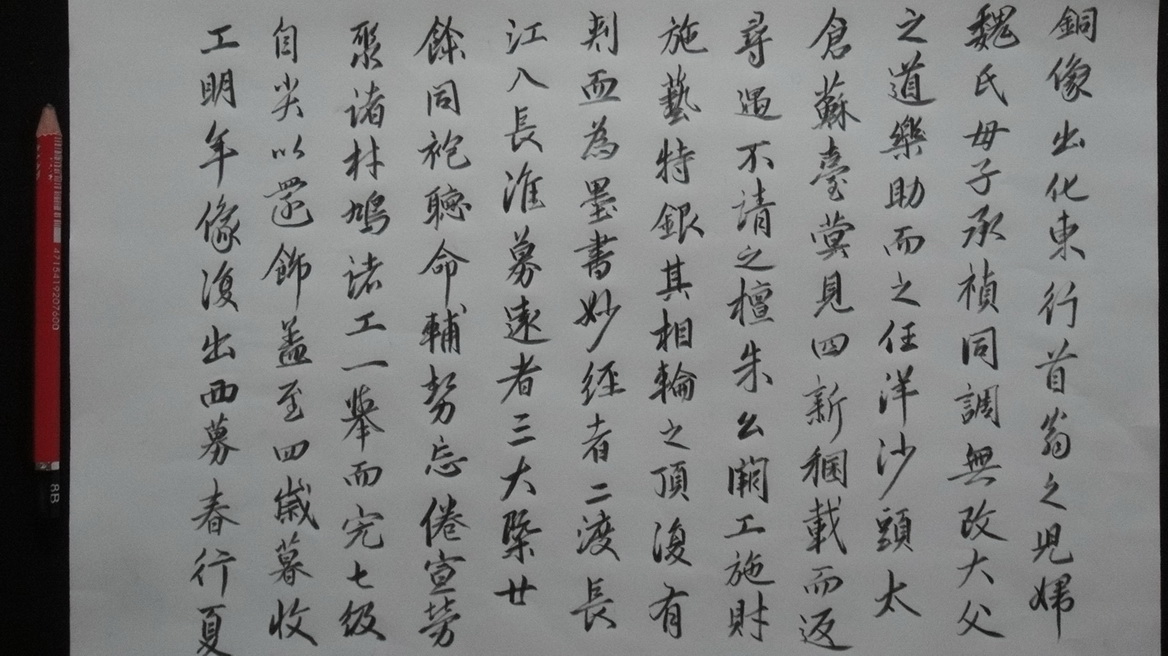 銅像出化東行首翁之児婦
魏氏母子承禎同調無改大父
之道樂助而之任洋沙頭太
倉蘇臺蓂見四新稇載而返
尋遇不請之檀朱公鬧工施財
施藝特銀其相輪之頂復有
刺血為墨書妙経者二渡長
江入長淮募遠者三大檠廿
餘同袍聴命輔勢忘倦宣勞
聚诸材鳩诸工一舉而完七级
自尖以還飾盖至四歲暮收
工明年像復出西募春行夏
4715419207600
8B